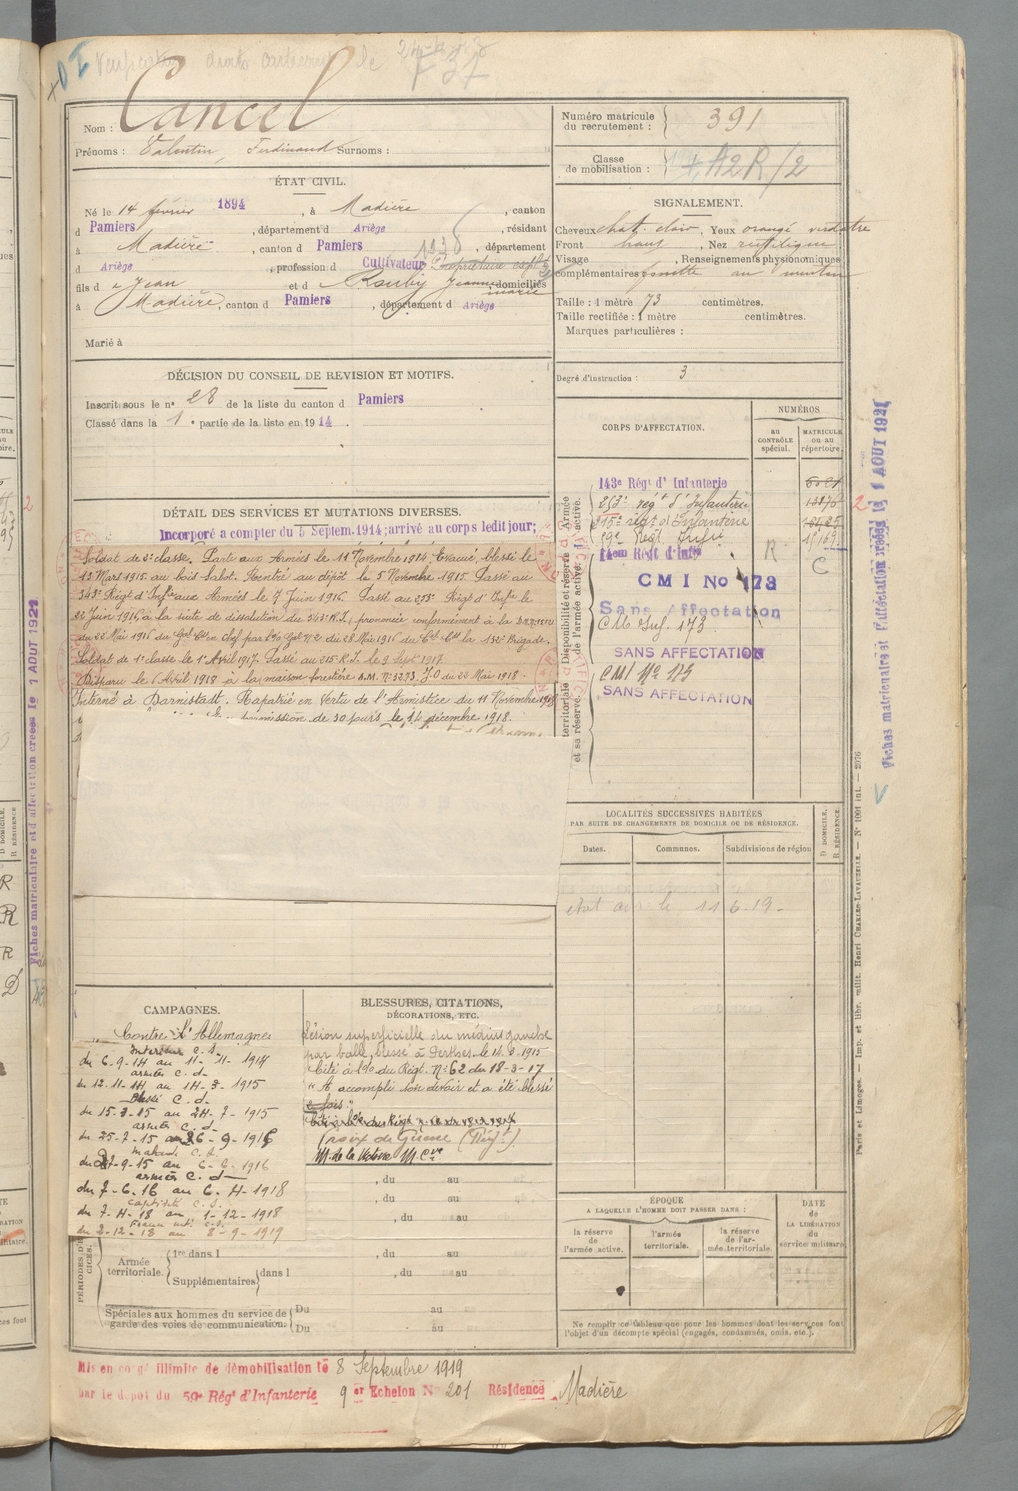 Nom : Cancel
Prénoms : Valentin, Ferdinand Surnoms :
Numéro matricule du recrutement : 391
Classe de mobilisation : A2R/2
ÉTAT CIVIL.
Né le 14 février 1894, à Madière, canton
d Pamiers, département d Ariège, résidant
à Madière, canton d Pamiers, département
d Ariège, profession d Cultivateur
fils de Jean et d Rouby Jeanne marie, domiciliés
à Madière, canton d Pamiers, département d Ariège
Marié à
SIGNALEMENT.
Cheveux chat. clair, Yeux orangé verdâtre
Front haut, Nez rectiligne
Visage , Renseignements physionomiques
complémentaires fossette au menton
Taille : 1 mètre 73 centimètres.
Taille rectifiée : 1 mètre centimètres.
Marques particulières :
Degré d'instruction : 3
DÉCISION DU CONSEIL DE REVISION ET MOTIFS.
Inscrit sous le n° 28 de la liste du canton d Pamiers
Classé dans la 1e partie de la liste en 1914
DÉTAIL DES SERVICES ET MUTATIONS DIVERSES.
Incorporé à compter du 5 Septem. 1914; arrivé au corps ledit jour;
Soldat de 2e classe. Parti aux Armées le 11 Novembre 1914. Evacué blessé le
15 Mars 1915 au bois Sabot. Rentré au dépôt le 5 Novembre 1915 Passé au
343e Régt d'Infie aux Armées le 7 Juin 1916. Passé au 253e Régt d'Infie le
22 Juin 1916, à la suite de dissolution du 343e R.I., prononcée conformément à la
du 22 Mai 1916 du Gal Ct en Chef par l'o/o Gal N° 2 du 28 Mai 1916 du Cel Ct la 131e Brigade.
Soldat de 1e classe le 1er Avril 1917. Passé au 215e R.I. le 9 Sept 1917
Disparu le 6 Avril 1918 à la maison forestière A.M. N° 3273. J.O du 25 Mai 1918 -
Interné à Darmstadt. Rapatrié en Vertu de l'Armistice du 11 Novembre 1918
permission de 30 jours le 14 décembre 1918.
CORPS D'AFFECTATION.
NUMÉROS
au CONTRÔLE spécial.
MATRICULE ou au répertoire.
Disponibilité et réserve de l'armée active. Armée active.
territoriale et sa réserve.
143e Régt d'Infanterie
253e régt d'Infanterie
215e régt d'Infanterie
59e Régt Infie
14em Régt d'Infie R C
CMI No 173
Sans Affectation
CM Inf. 173
SANS AFFECTATION
CMI N° 175
SANS AFFECTATION
LOCALITÉS SUCCESSIVES HABITÉES
PAR SUITE DE CHANGEMENTS DE DOMICILE OU DE RÉSIDENCE.
Dates. Communes. Subdivisions de région
D DOMICILE. R RÉSIDENCE.
CAMPAGNES.
Contre l'Allemagne
Intérieur C.S.
du 6-9-14 au 11-11-1914
armées C.d
du 12-11-14 au 14-3-1915
Blessé C.d
du 15-3-15 au 24-7-1915
armées C.d
du 25-7-15 au 26-9-1915
malad. C.S.
du 27-9-15 au 6-6-1916
armées C.d
du 7-6-16 au 6-4-1918
captivité C.S.
du 7-4-18 au 1-12-1918
du 2-12-18 au 8-9-1919
BLESSURES, CITATIONS,
DÉCORATIONS, ETC.
Lésion superficielle du médius gauche
par balle, blessé à Perthes le 14-3-1915
Cité à l'o/o du Régt. N° 62 du 18-3-17
"A accompli son devoir et a été blessé
2 fois."
Croix de Guerre (Régt)
M. de la Victoire M. Cve
, du au
, du au
, du au
, du au
, du au
PÉRIODES D'EXERCICES.
Armée territoriale.
1re dans l
Supplémentaires dans l
Spéciales aux hommes du service de garde des voies de communication.
Du au
Du au
ÉPOQUE
A LAQUELLE L'HOMME DOIT PASSER DANS :
la réserve de l'armée active.
l'armée territoriale.
la réserve de l'armée territoriale.
DATE de LA LIBÉRATION du service militaire.
Ne remplir ce tableau que pour les hommes dont les services font
l'objet d'un décompte spécial (engagés, condamnés, omis, etc.).
Mis en congé illimité de démobilisation le 8 Septembre 1919
par le dépôt du 59e Régt d'Infanterie 9er Echelon N° 201 Résidence Madière
Fiches matriculaire et d'affectation créées le 1 AOUT 1921
Fiches matriculaire et d'affectation créées le 1 AOUT 1921
Paris et Limoges. — Imp. et libr. milit. Henri CHARLES-LAVAUZELLE. — N° 1001 int. — 2976